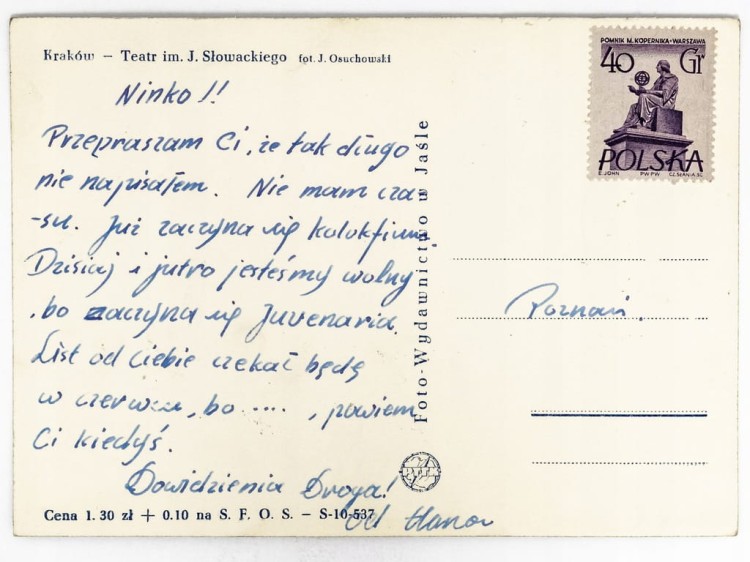 Kraków – Teatr im. J. Słowackiego fot. J. Osuchowski
Ninko!!
Przepraszam Ci, że tak długo
nie napisałem. Nie mam cza-
-su. Już zaczyna się kolokfium
Dzisiaj i jutro jesteśmy wolny
, bo zaczyna się Juvenaria.
List od ciebie czekać będę
w czerwcu, bo ...., powiem
Ci kiedyś.
Dowidzienia Droga!
od
Cena 1.30 zł + 0.10 na S. F. O. S. – S-10-537
Foto-Wydawnictwo w Jaśle
POMNIK M. KOPERNIKA • WARSZAWA
40 Gr
POLSKA
E. JOHN PWPW CZ. SŁANIA SC.
Poznań.